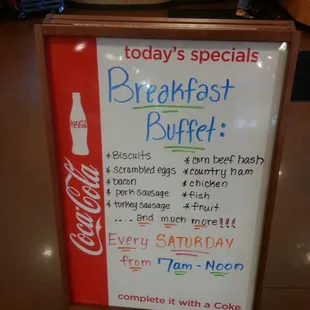 today's specials
Breakfast
Buffet:
* Biscuits
* scrambled eggs
* bacon
* pork sausage
* turkey sausage
* corn beef hash
* country ham
* chicken
* fish
* fruit
.... and much more!!!
Every SATURDAY
from 7am - Noon
complete it with a Coke
Coca-Cola